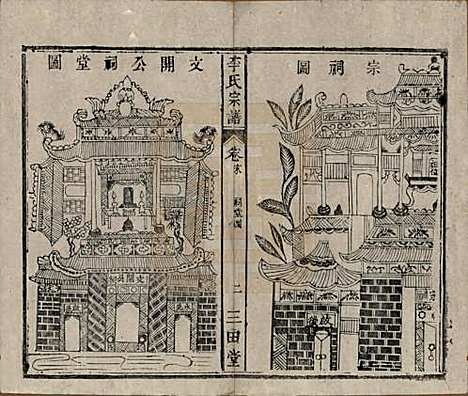 宗祠圖
李氏宗譜
卷末
祠堂圖
二
三田堂
文開公祠堂圖